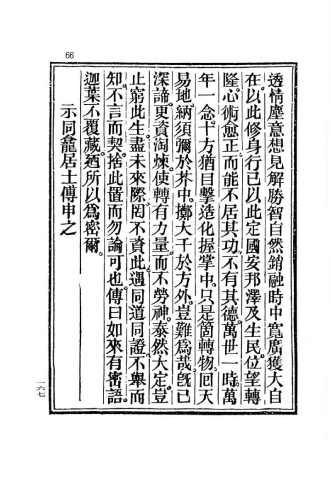 66
透情塵意想見解勝智自然銷融時中寬廣獲大自
在以此修身行已以此定國安邦澤及生民位望轉
隆心術愈正而能不居其功不有其德萬世一時萬
年一念十方猶目擊造化握掌中只是箇轉物回天
易地納須彌於芥中擲大千於方外豈難為哉既已
深諦更資淘煉使轉有力量而不勞神泰然大定豈
止窮此生盡未來際罔不資此遇同道同證不舉而
知不言而契捨此置而勿論可也傳曰如來有密語
迦葉不覆藏廼所以為密爾
示同龕居士傅申之
一六七